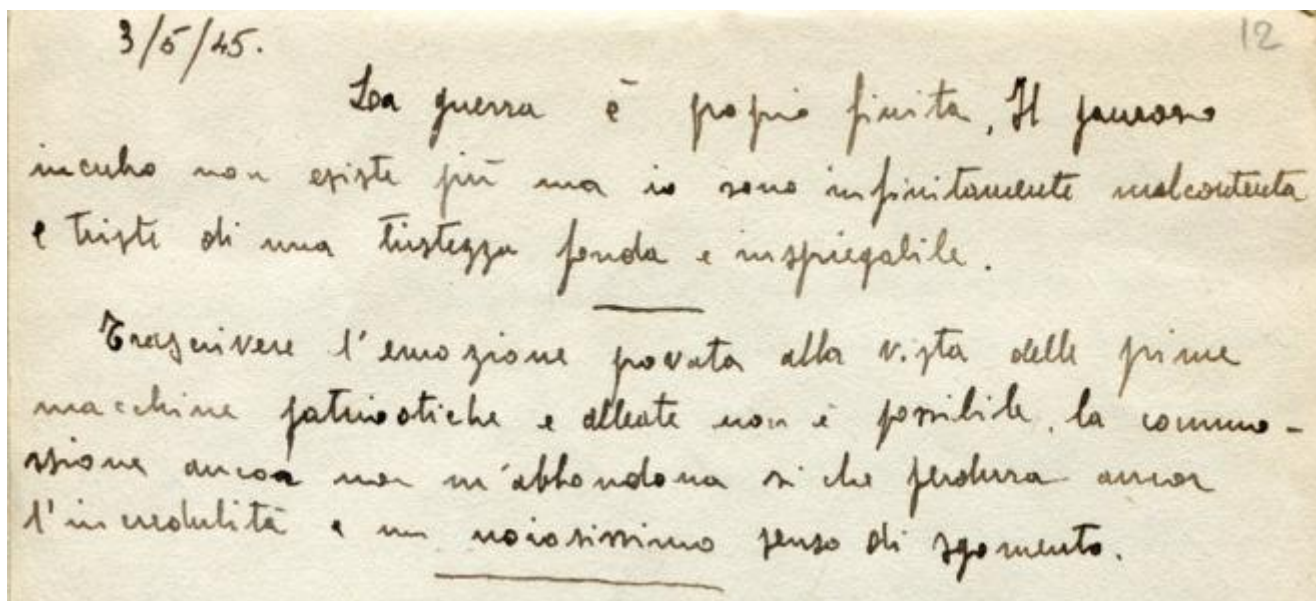 3/5/45.
12
La guerra è proprio finita, Il pauroso
incubo non esiste più ma io sono infinitamente malcontenta
e triste di una tristezza fonda e inspiegabile.
Trascrivere l'emozione provata alla vista delle prime
macchine patriottiche e alleate non è possibile, la commo-
zione ancora non m'abbandona sì che perdura ancor
l'incredulità e un noiosissimo senso di sgomento.